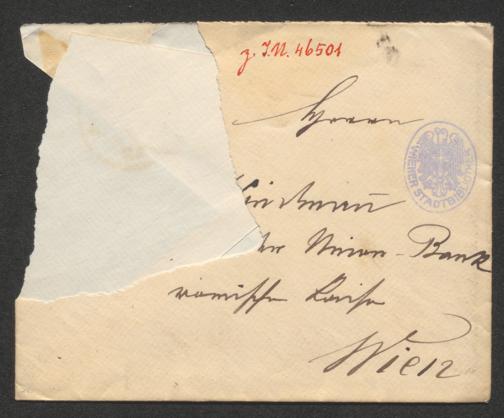 z. I.N. 46501
Herrn
WIENER STADTBIBLIOTHEK
der Union-Bank
römischer Kaiser
Wien